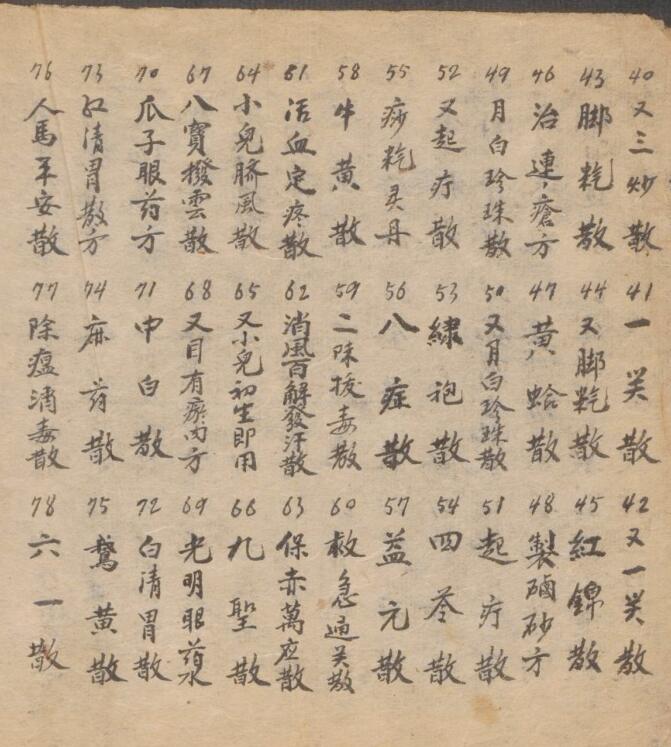 40 又三妙散
41 一笑散
42 又一笑散
43 脚粃散
44 又脚粃散
45 紅錦散
46 治連瘡方
47 黄蛤散
48 製硇砂方
49 月白珍珠散
50 又月白珍珠散
51 起疔散
52 又起疔散
53 綉袍散
54 四苓散
55 痧粃灵丹
56 八症散
57 益元散
58 牛黄散
59 二味拔毒散
60 救急通关散
61 活血定疼散
62 消風百解發汗散
63 保赤萬应散
64 小兒臍風散
65 又小兒初生即用
66 九聖散
67 八寶撥雲散
68 又目有瘀肉方
69 光明眼药水
70 瓜子眼药方
71 中白散
72 白清胃散
73 红清胃散方
74 麻药散
75 鵞黄散
76 人馬平安散
77 除瘟消毒散
78 六一散